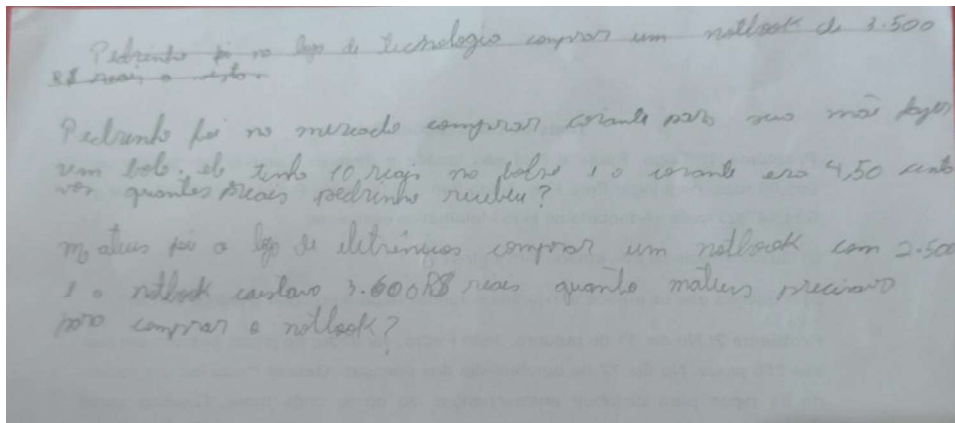 Pedrinho foi na loja de tecnologia comprar um notbook de 3.500
R$ reais a
Pedrinho foi no mercado comprar corante para sua mãe fazer
um bolo, ele tinha 10 reais no bolso e o corante era 4,50 centa
vos quantos reais pedrinho recebeu?
Mateus foi a loja de eletrônicos comprar um notbook com 2.500
e o notbook custava 3.600R$ reais quanto mateus precisava
para comprar o notbook?